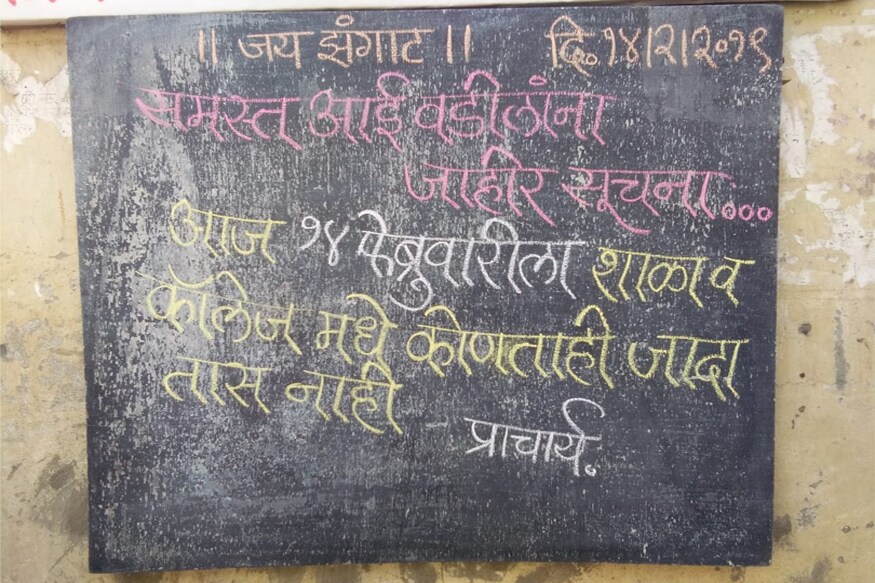 ॥ जय झंगाट ॥ दि. १४/२/२०१९
समस्त आई वडीलांना
जाहीर सूचना...
आज १४ फेब्रुवारीला शाळा व
कॉलेज मधे कोणताही जादा
तास नाही
प्राचार्य.